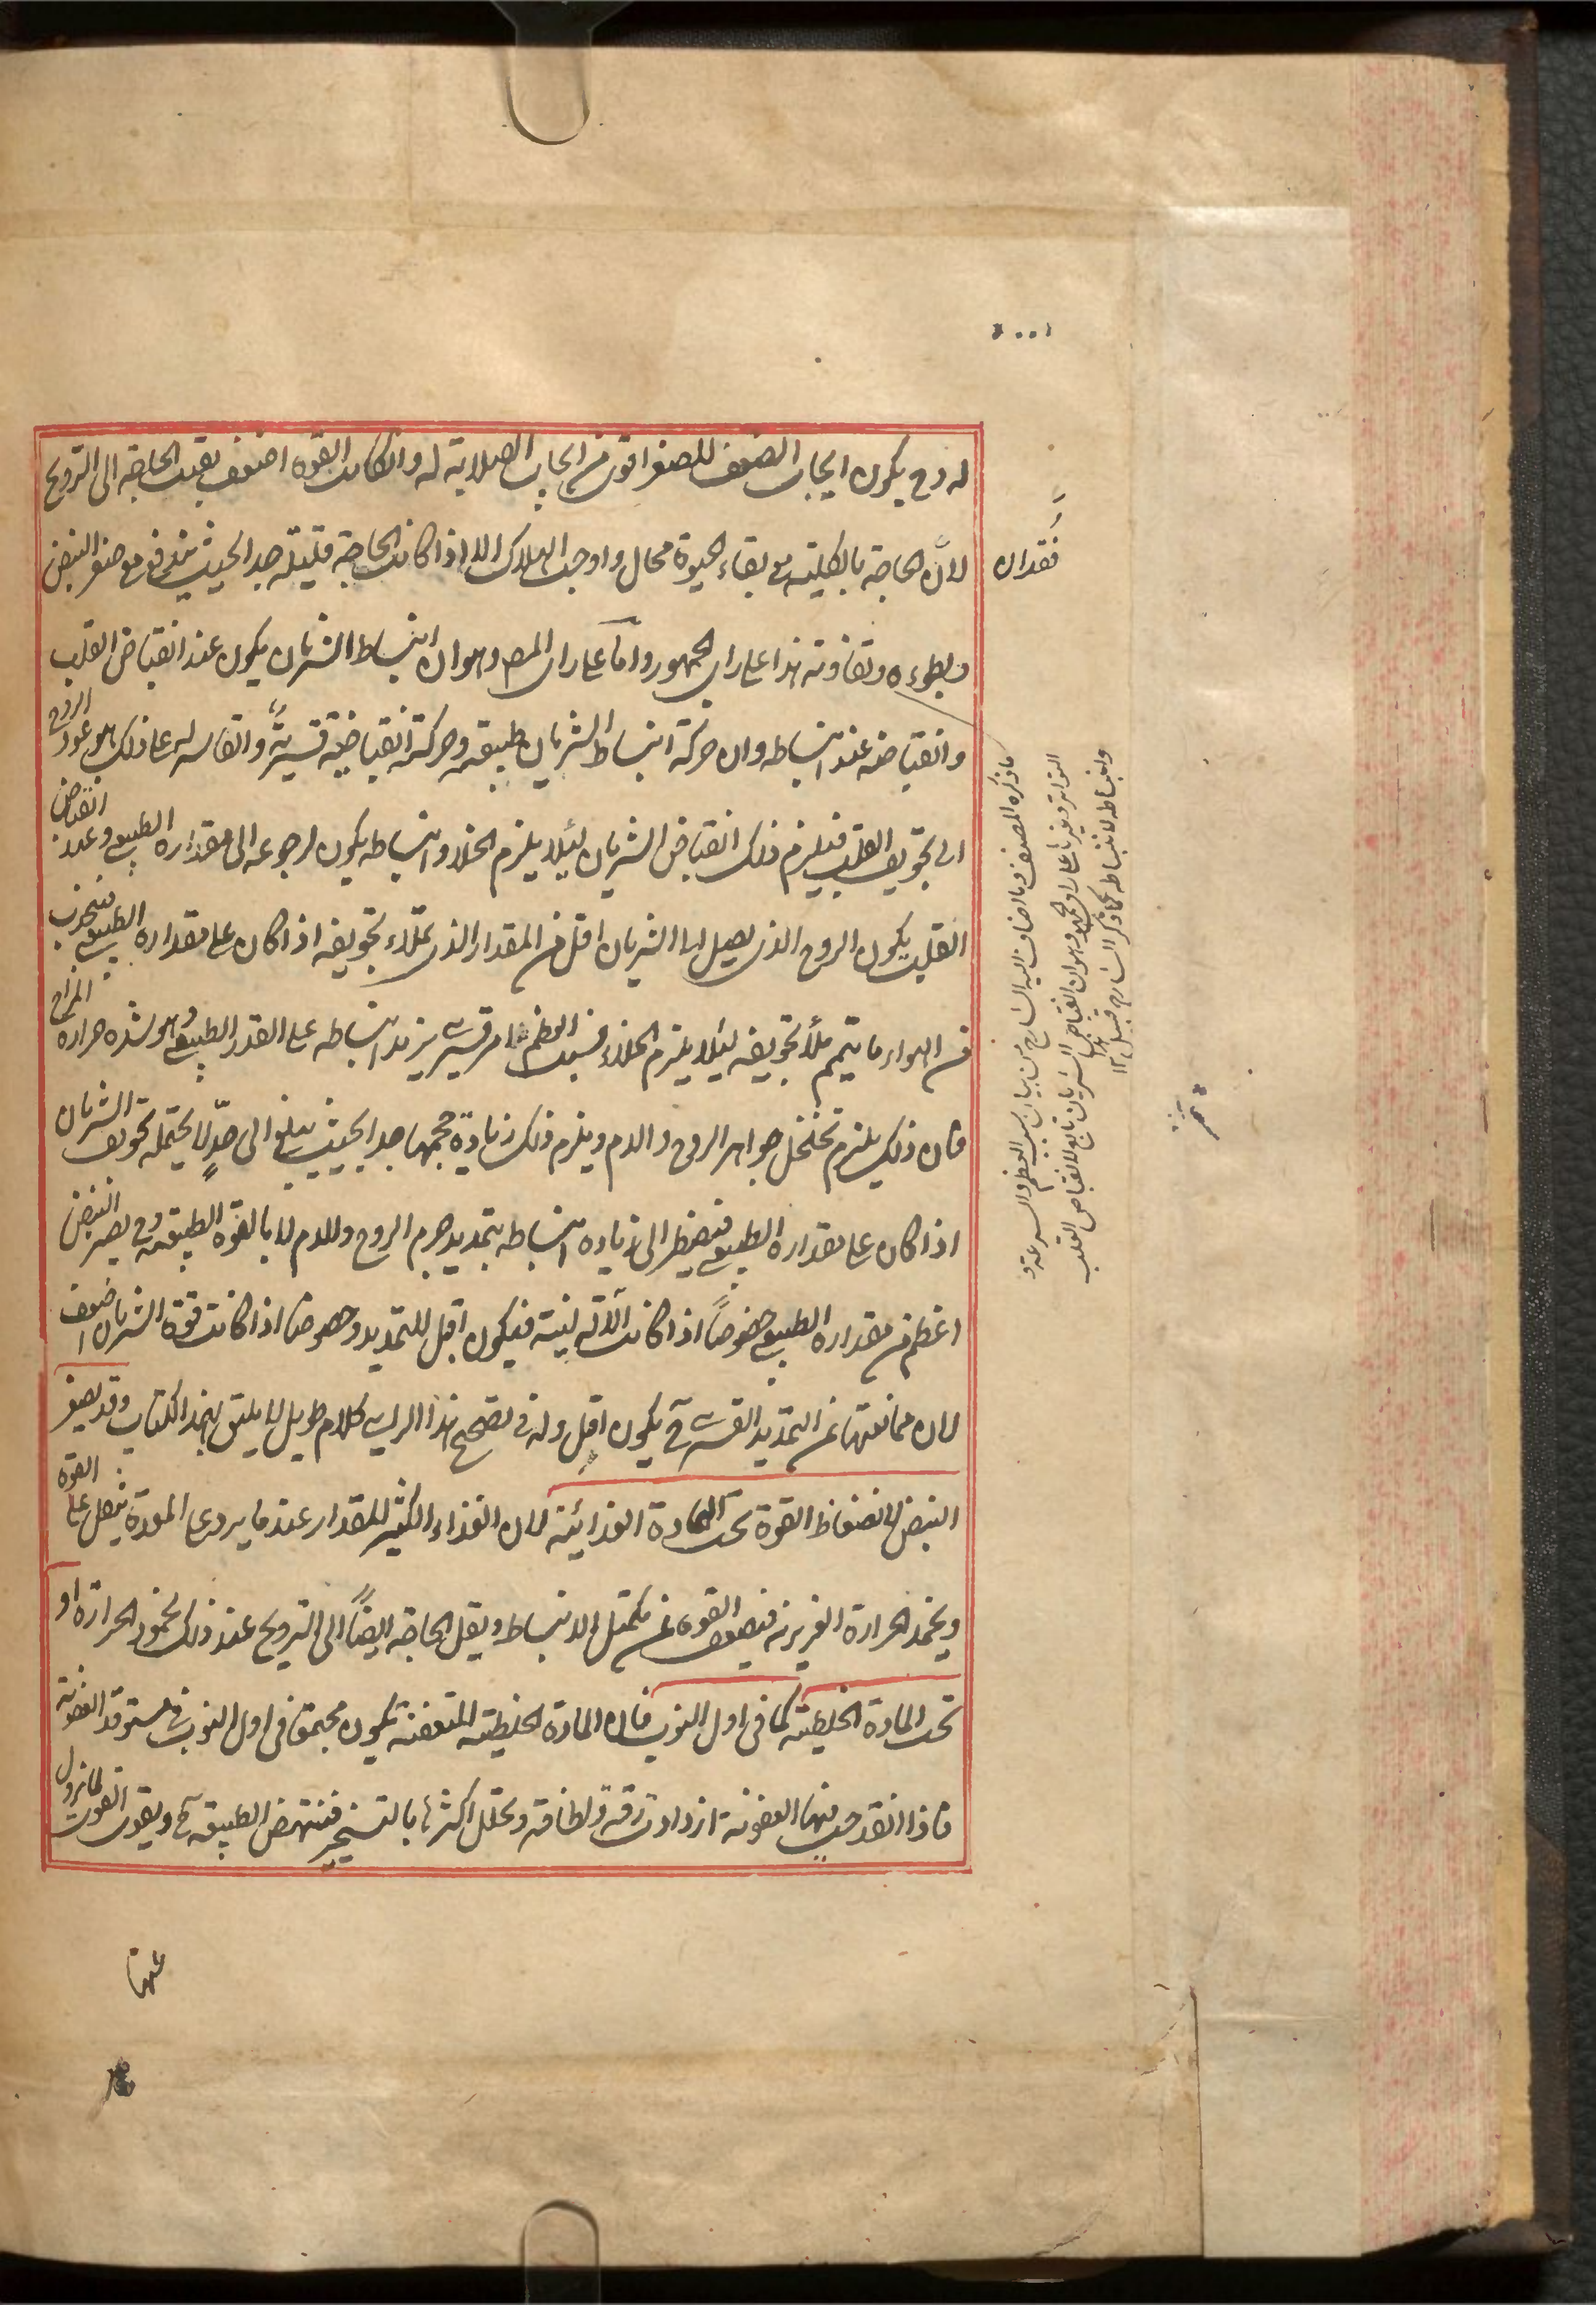 له وح يكون ايجاب الضعف للصغر اقوى من ايجاب الصلابة له وان كانت القوة اضعف بقيت الحاجة الى الترويح
لان الحاجة بالكلية مع بقاء الحيوة محال واوجب الهلاك الا اذا كانت الحاجة قليلة جدا بحيث يندفع مع صغر النبض
فقدان
وبطوءه وتفاوته هذا على راى الجمهور واما على راى المص وهو ان انبساط الشريان يكون عند انقباض القلب
وانقباضه عند انبساطه وان حركة انبساط الشريان طبيعية وحركة انقباضه قسرية والقاسر له على ذلك هو عود الروح
الى تجويف القلب فيلزم ذلك انقباض الشريان لئلا يلزم الخلاء وانبساطه يكون لرجوعه الى مقداره الطبيعى وعند انقباض
القلب يكون الروح الذى يصل الى الشريان اقل من المقدار الذى يملاء تجويفه اذا كان على مقداره الطبيعى فينجذب
من الهواء ما يتمم ملأ تجويفه لئلا يلزم الخلاء فسبب العظم امر قسرى يزيد انبساطه على القدر الطبيعى وهو شدة حرارة المزاج
فان ذلك يلزم تخلخل جواهر الروح والدم ويلزم ذلك زيادة حجمها جدا بحيث يبلغ الى حد لا يحتمله تجويف الشريان
اذا كان على مقداره الطبيعى فيضطر الى زيادة انبساطه بتمديد جرم الروح والدم لا بالقوة الطبيعية وح يصير النبض
اعظم من مقداره الطبيعى خصوصاً اذا كانت الآلة لينة فيكون اقبل للتمديد وخصوصا اذا كانت قوة الشريان اضعف
لان ممانعتها عن التمديد القسرى ح يكون اقل وله فى تصحيح هذا الراى كلام طويل لا يليق بهذا الكتاب وقد يصغر
النبض لانضغاط القوة تحت المادة الغذائية لان الغذاء الكثير المقدار عند ما يرد على المعدة يثقل على القوة
ويخمد الحرارة الغريزية فيضعف القوة عن تكميل الانبساط ويقل الحاجة ايضاً الى الترويح عند ذلك لخمود الحرارة او
تحت المادة الخلطية كما فى اول النوب فان المادة الخلطية المتعفنة يكون مجتمعة فى اول النوب فى مستوقد العفونة
فاذا انقدحت فيها العفونة ازدادت رقة ولطافة وتحلل اكثرها بالتسخير فينتهض الطبيعة ح ويقوى القوة لما نزول
عنها
ما ذكره المصنف وما اضاف اليه الشارح من بيان سبب العظم والسرعة و
التواتر وغيرها على راى الجمهور وهو ان انقباض الشريان تابع لانقباض القلب
وانبساطه لانبساطه كما ذكر الشارح قبيل ١٢